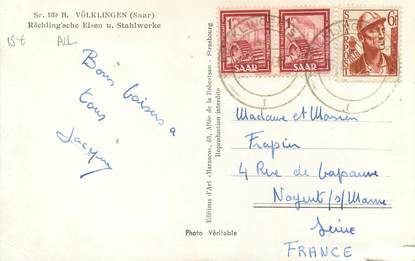 Sr. 139 B. VÖLKLINGEN (Saar)
Röchling'sche Eisen u. Stahlwerke
15€ ALL
Bons baisers à
tous
Jacques
Editions d'Art «Marasco», 65, Allée de la Robertsau - Strasbourg
Reproduction interdite
Photo Véritable
1 SAAR
1 SAAR
6F
SAARPOST
Madame et Monsieur
Frapin
4 Rue de
Nogent/s/Marne
Seine
FRANCE